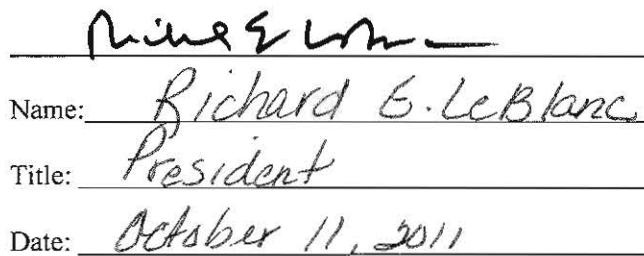 Name: Richard E. LeBlanc
Title: President
Date: October 11, 2011